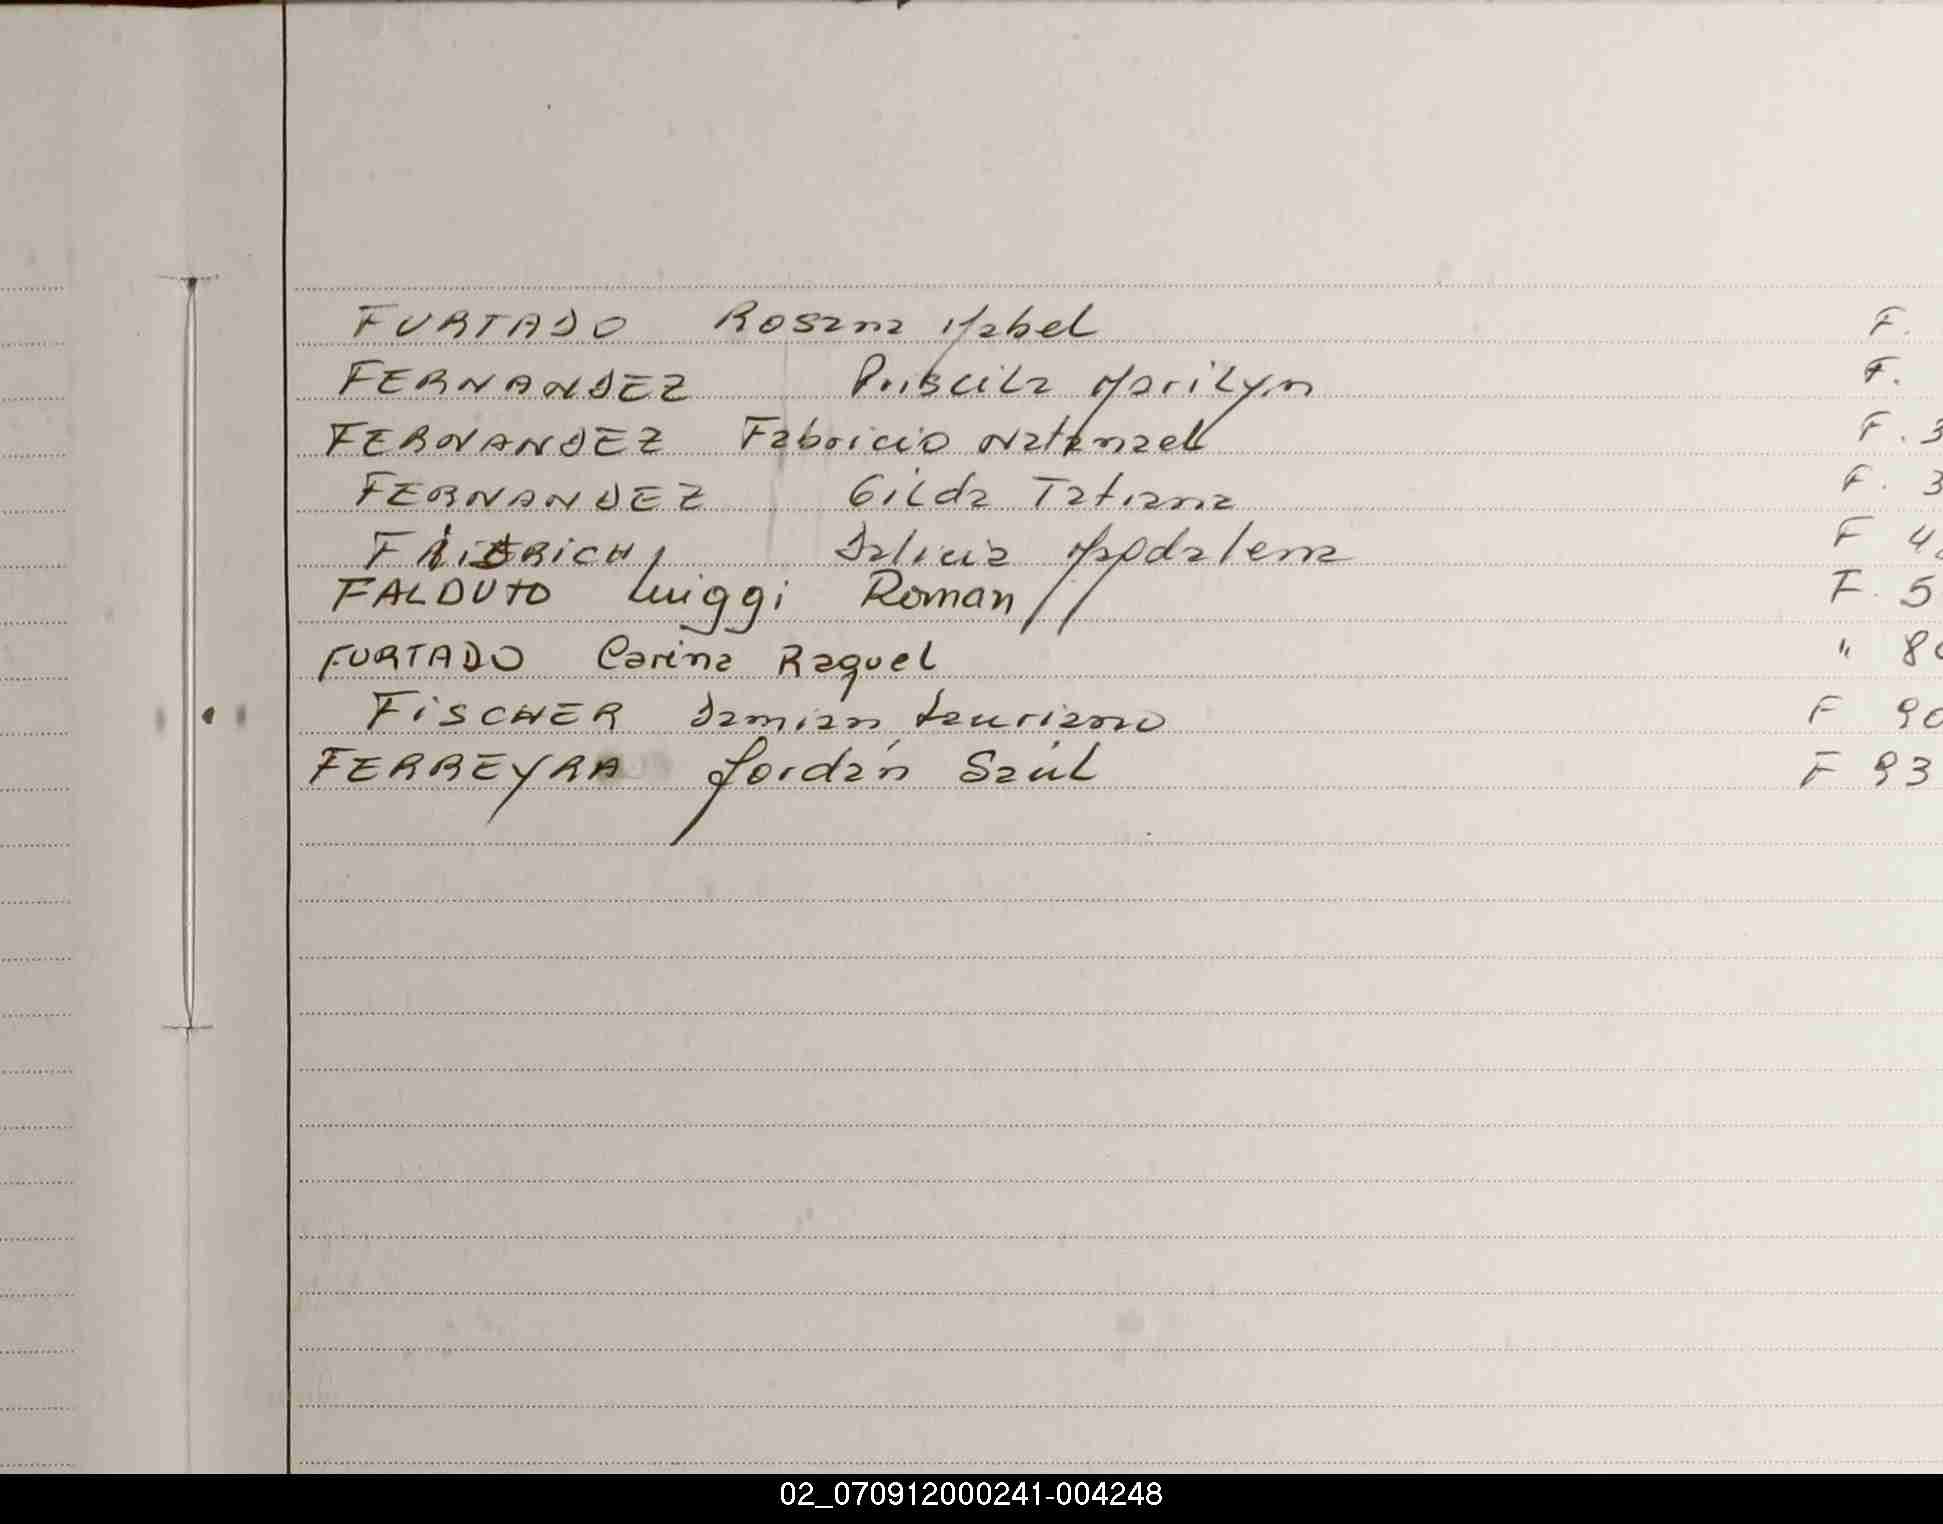 FURTADO Rosana Mabel F.
FERNANDEZ Priscila Marilyn F.
FERNANDEZ Fabricio Natanael F. 3
FERNANDEZ Gilda Tatiana F. 3
Magdalena F 4
FALDUTO Luiggi Roman F. 5
FURTADO Carina Raquel " 80
FISCHER Damian F 90
FERREYRA Jordán Saúl F 93
02_070912000241-004248